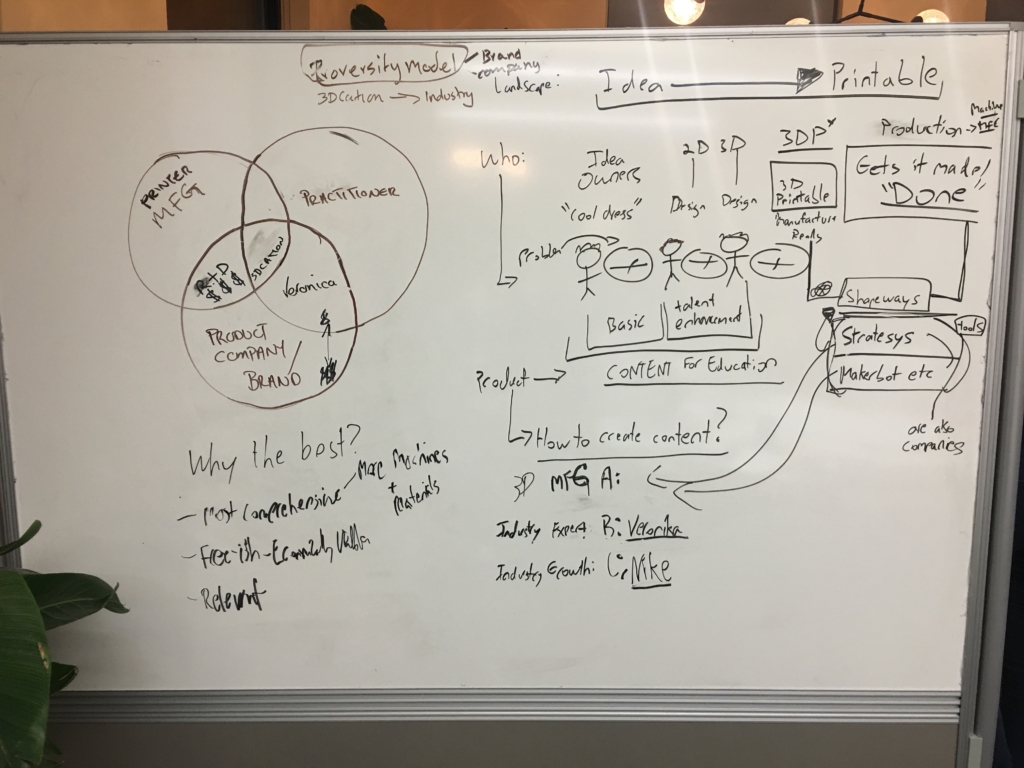 Proversity Model
Brand
company
Landscape:
3DCation → Industry
Idea → Printable
PRINTER
MFG
PRACTITIONER
R+D
$ $ $
3DCATION
Veronica
PRODUCT
COMPANY
BRAND
Why the best?
- Most Comprehensive
More Machines
+
Materials
- Free-ish -
- Relevant
Who:
Idea
Owners
"Cool dress"
2D 3D
Design Design
3DP
3D
Printable
Manufacture
Ready
Production → Machine
MFG
Gets it made!
"Done"
Problem
Basic
talent
enhancement
CONTENT For Education
Product →
How to create content?
3D MFG A:
Industry Expert B: Veronika
Industry Growth: C: Nike
Shapeways
Stratesys
Makerbot etc
tools
are also
companies